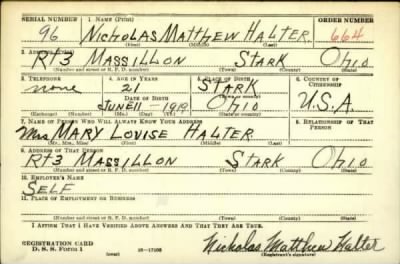 SERIAL NUMBER 1. NAME (Print) ORDER NUMBER
96 NICHOLAS MATTHEW HALTER 664
(First) (Middle) (Last)
2. ADDRESS (Print)
RT3 MASSILLON STARK OHIO
(Number and street or R. F. D. number) (Town) (County) (State)
3. TELEPHONE 4. AGE IN YEARS 5. PLACE OF BIRTH 6. COUNTRY OF CITIZENSHIP
none 21 STARK
DATE OF BIRTH (Town or county)
JUNE 11-1919 OHIO U.S.A.
(Exchange) (Number) (Mo.) (Day) (Yr.) (State or country)
7. NAME OF PERSON WHO WILL ALWAYS KNOW YOUR ADDRESS 8. RELATIONSHIP OF THAT PERSON
Mrs MARY LOUISE HALTER
(Mr., Mrs., Miss) (First) (Middle) (Last)
9. ADDRESS OF THAT PERSON
RT3 MASSILLON STARK OHIO
(Number and street or R. F. D. number) (Town) (County) (State)
10. EMPLOYER'S NAME
SELF
11. PLACE OF EMPLOYMENT OR BUSINESS
(Number and street or R. F. D. number) (Town) (County) (State)
I AFFIRM THAT I HAVE VERIFIED ABOVE ANSWERS AND THAT THEY ARE TRUE.
REGISTRATION CARD
D. S. S. FORM 1 (over) Nicholas Matthew Halter
(Registrant's signature)